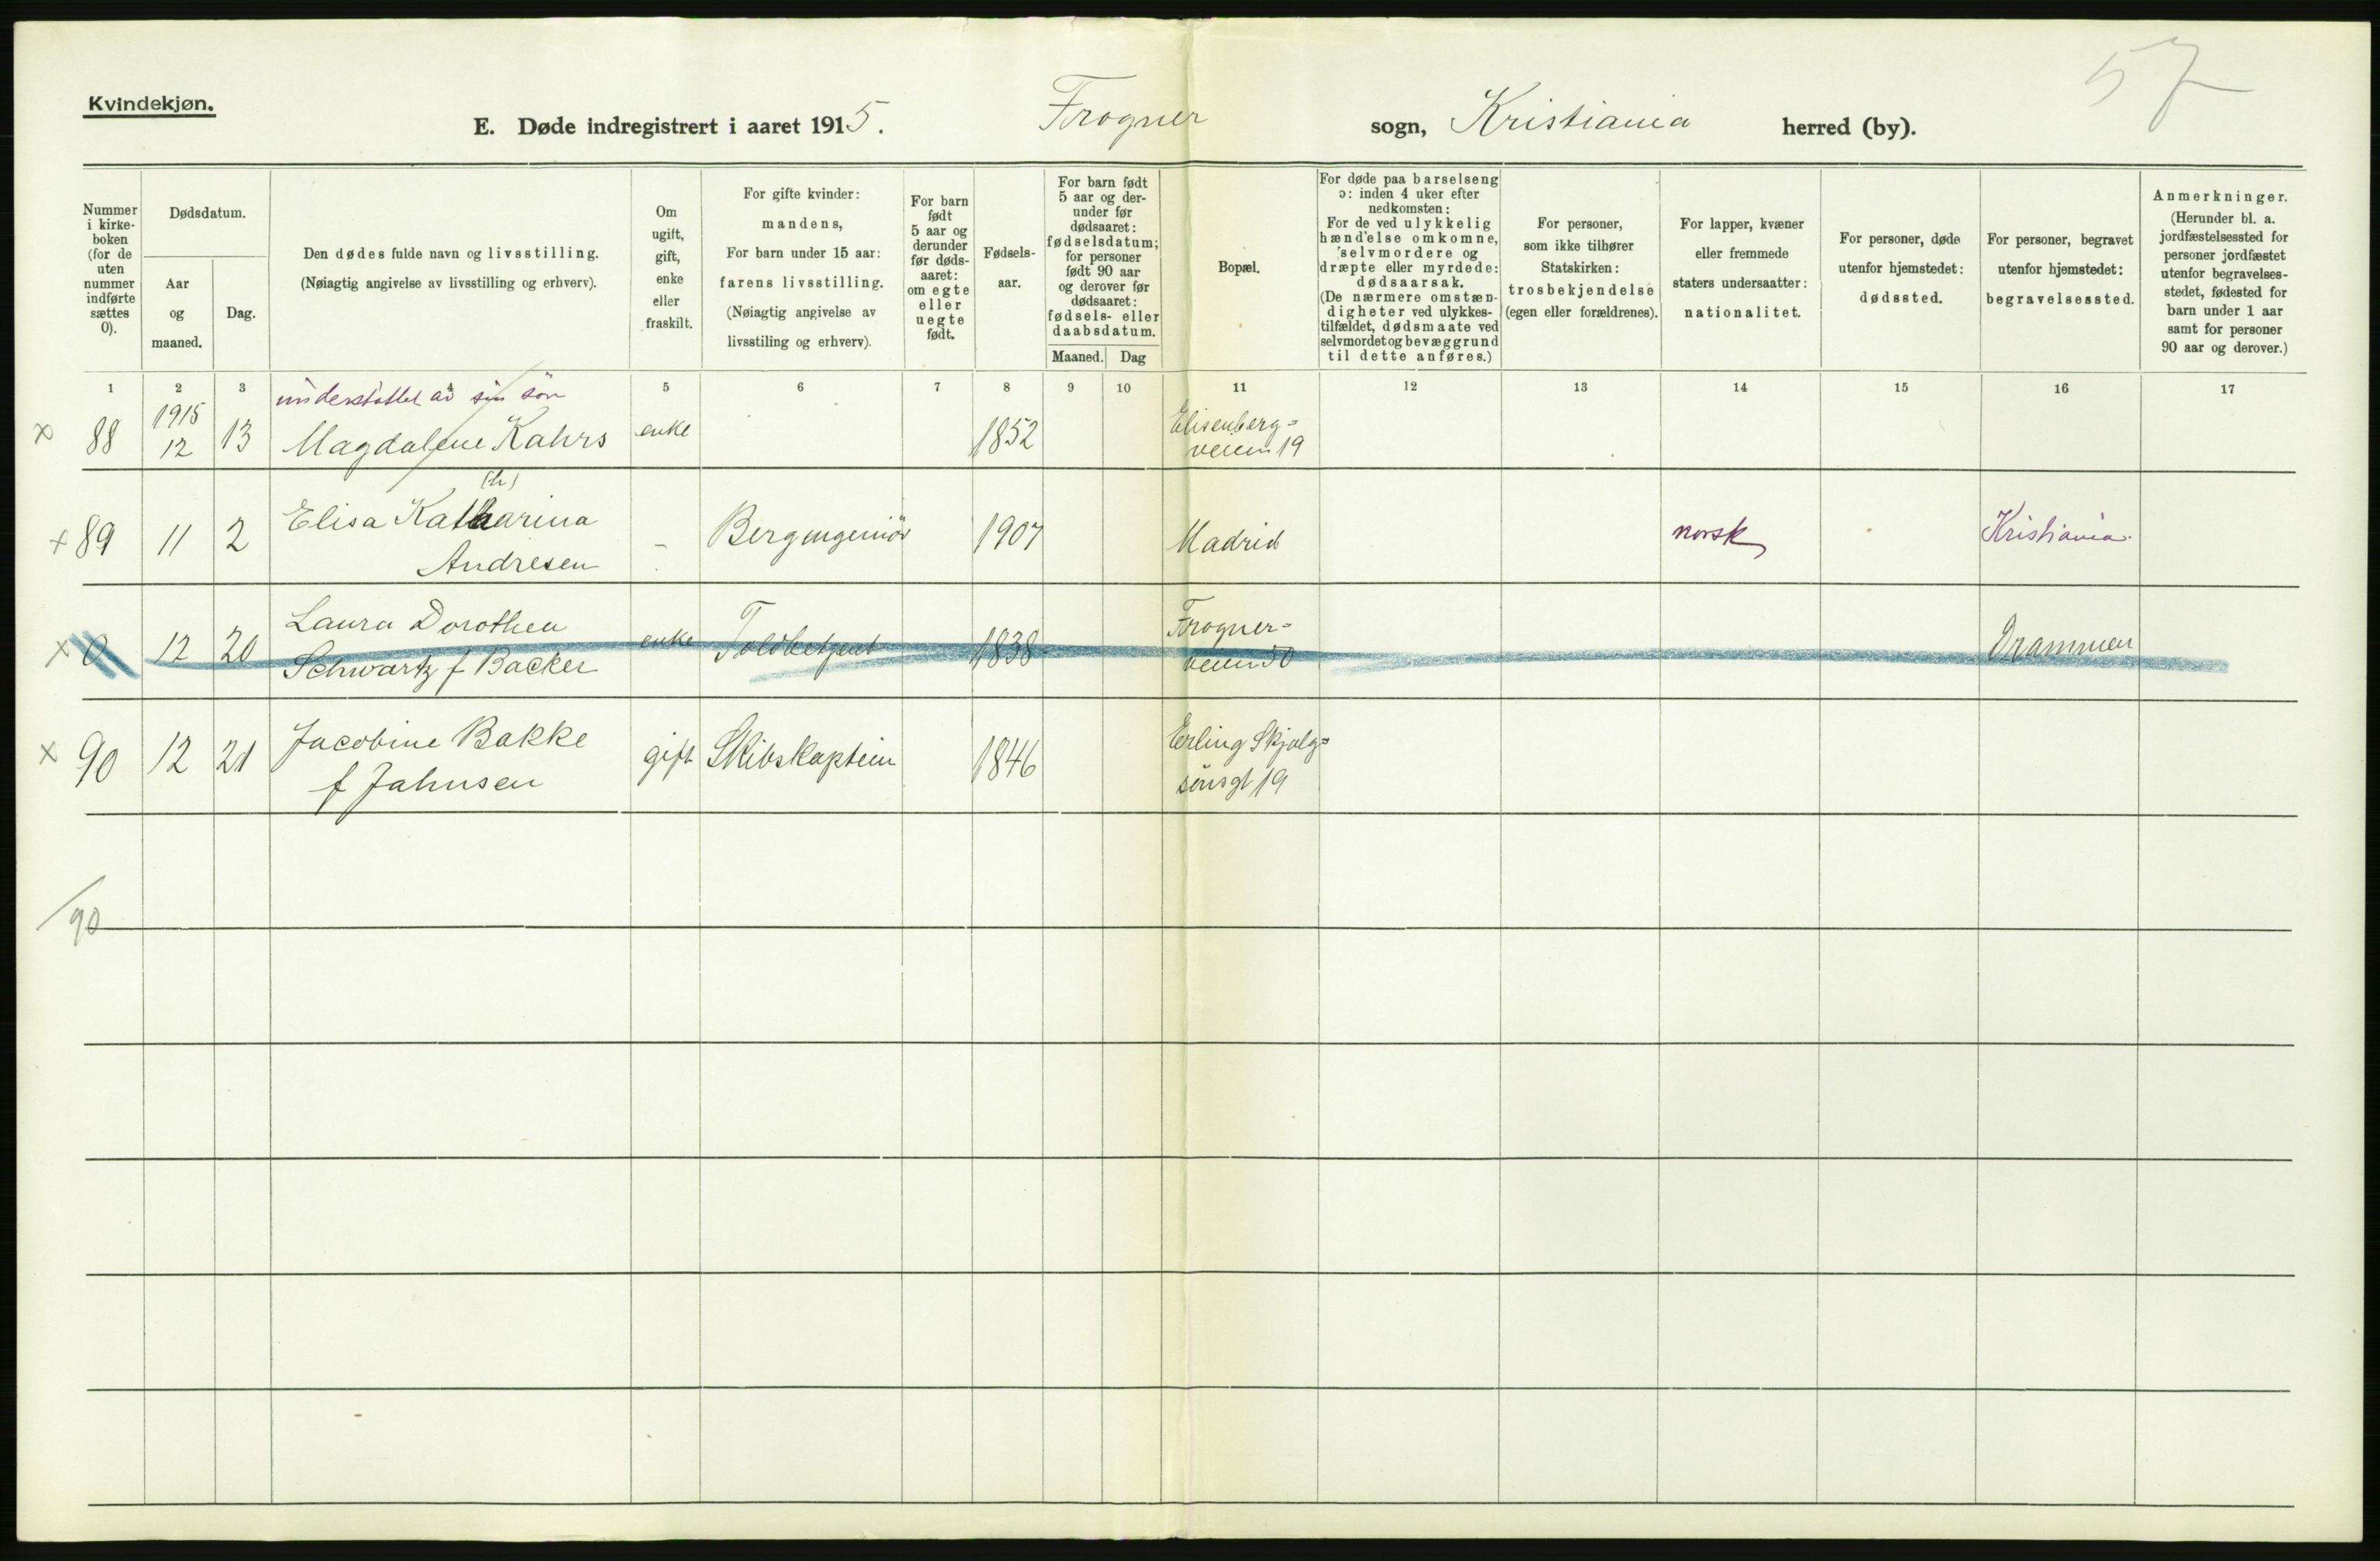 57
Kvindekjøn.
E. Døde indregistrert i aaret 1915. Frogner sogn, Kristiania herred (by).
Nummer i kirke-boken (for de uten nummer indførte sættes 0).
Dødsdatum.
Aar og maaned.
Dag.
Den dødes fulde navn og livsstilling.
(Nøiagtig angivelse av livsstilling og erhverv).
Om ugift, gift, enke eller fraskilt.
For gifte kvinder:
mandens,
For barn under 15 aar:
farens livsstilling.
(Nøiagtig angivelse av
livsstiling og erhverv).
For barn født 5 aar og derunder før døds-aaret: om egte eller uegte født.
Fødsels-aar.
For barn født 5 aar og der-under før dødsaaret: fødselsdatum; for personer født 90 aar og derover før dødsaaret: fødsels- eller daabsdatum.
Maaned. Dag
Bopæl.
For døde paa barselseng
ɔ: inden 4 uker efter
nedkomsten:
For de ved ulykkelig
hændelse omkomne,
selvmordere og
dræpte eller myrdede:
dødsaarsak.
(De nærmere omstæn-
digheter ved ulykkes-
tilfældet, dødsmaate ved
selvmordet og bevæggrund
til dette anføres.)
For personer,
som ikke tilhører
Statskirken:
trosbekjendelse
(egen eller forældrenes).
For lapper, kvæner
eller fremmede
staters undersaatter:
nationalitet.
For personer, døde
utenfor hjemstedet:
dødssted.
For personer, begravet
utenfor hjemstedet:
begravelsessted.
Anmerkninger.
(Herunder bl. a.
jordfæstelsessted for
personer jordfæstet
utenfor begravelses-
stedet, fødested for
barn under 1 aar
samt for personer
90 aar og derover.)
1 2 3 4 5 6 7 8 9 10 11 12 13 14 15 16 17
understøttet av sin søn
x 88 1915 12 13 Magdalene Kahrs enke 1852 Elisenberg=
veien 19
(h)
x 89 11 2 Elisa Katharina - Bergingeniør 1907 Madrid norsk Kristiania.
Andresen
x 0 12 20 Laura Dorothea enke Toldbetjent 1838 Frogner= Drammen
Schwartz f Backer veien 50
x 90 12 21 Jacobine Bakke gift Skibskaptein 1846 Erling Skjalg=
f Jahnsen sønsgt 19
/90